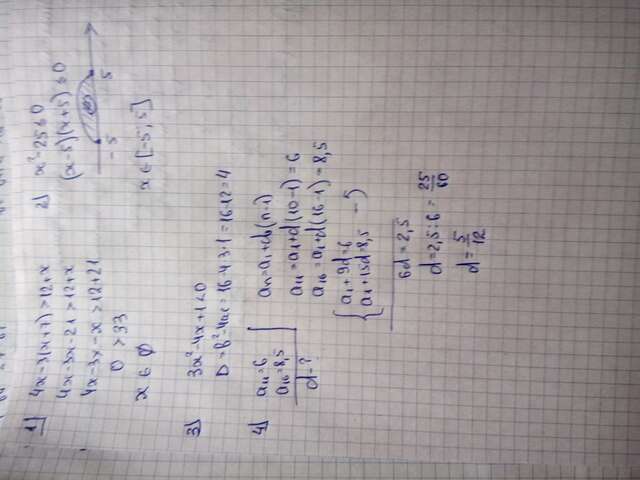 1) 4x-3(x+7)>12+x
4x-3x-21>12+x
4x-3x-x>12+21
0>33
x∈∅
2) x²-25≤0
(x-5)(x+5)≤0
-5 5
x∈[-5;5]
3) 3x²-4x+1<0
D=b²-4ac=16-4·3·1=16-12=4
4) a₁₀=6
a₁₆=8,5
d-?
aₙ=a₁+d(n-1)
a₁₀=a₁+d(10-1)=6
a₁₆=a₁+d(16-1)=8,5
a₁+9d=6
a₁+15d=8,5
6d=2,5
d=2,5:6=25/60
d=5/12